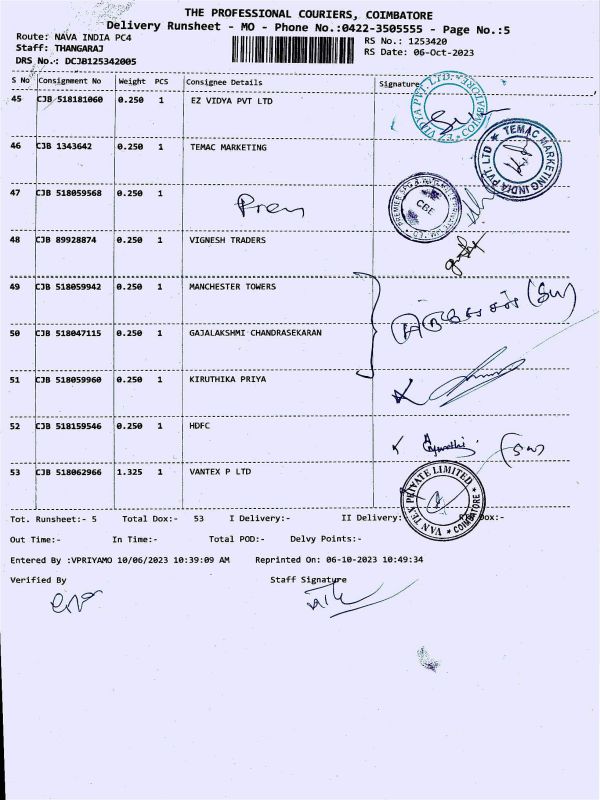 THE PROFESSIONAL COURIERS, COIMBATORE
Delivery Runsheet - MO - Phone No.:0422-3505555 - Page No.:5
Route: NAVA INDIA PC4 RS No.: 1253420
Staff: THANGARAJ RS Date: 06-Oct-2023
DRS No.: DCJB125342005
S No Consignment No Weight PCS Consignee Details Signature
45 CJB 518181060 0.250 1 EZ VIDYA PVT LTD
46 CJB 1343642 0.250 1 TEMAC MARKETING
TEMAC MARKETING INDIA PVT. LTD
47 CJB 518059568 0.250 1
CBE
48 CJB 89928874 0.250 1 VIGNESH TRADERS
49 CJB 518059942 0.250 1 MANCHESTER TOWERS
50 CJB 518047115 0.250 1 GAJALAKSHMI CHANDRASEKARAN
51 CJB 518059960 0.250 1 KIRUTHIKA PRIYA
52 CJB 518159546 0.250 1 HDFC
53 CJB 518062966 1.325 1 VANTEX P LTD
VAN TEX PRIVATE LIMITED COIMBATORE
Tot. Runsheet:- 5 Total Dox:- 53 I Delivery:- II Delivery:
Out Time:- In Time:- Total POD:- Delvy Points:-
Entered By :VPRIYAMO 10/06/2023 10:39:09 AM Reprinted On: 06-10-2023 10:49:34
Verified By Staff Signature